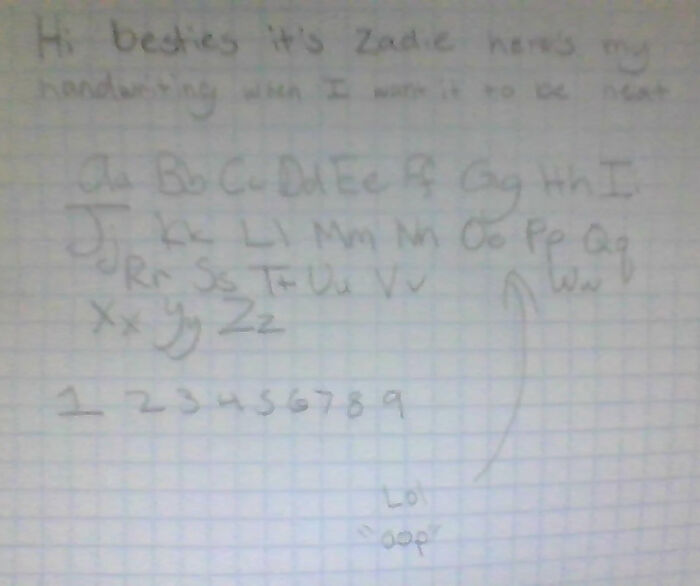 Hi besties it's Zadie here's my
handwriting when I want it to be neat
Aa Bb Cc Dd Ee Ff Gg Hh Ii
Jj Kk Ll Mm Nn Oo Pp Qq
Rr Ss Tt Uu Vv Ww
Xx Yy Zz
1 2 3 4 5 6 7 8 9
Lol
"oop"